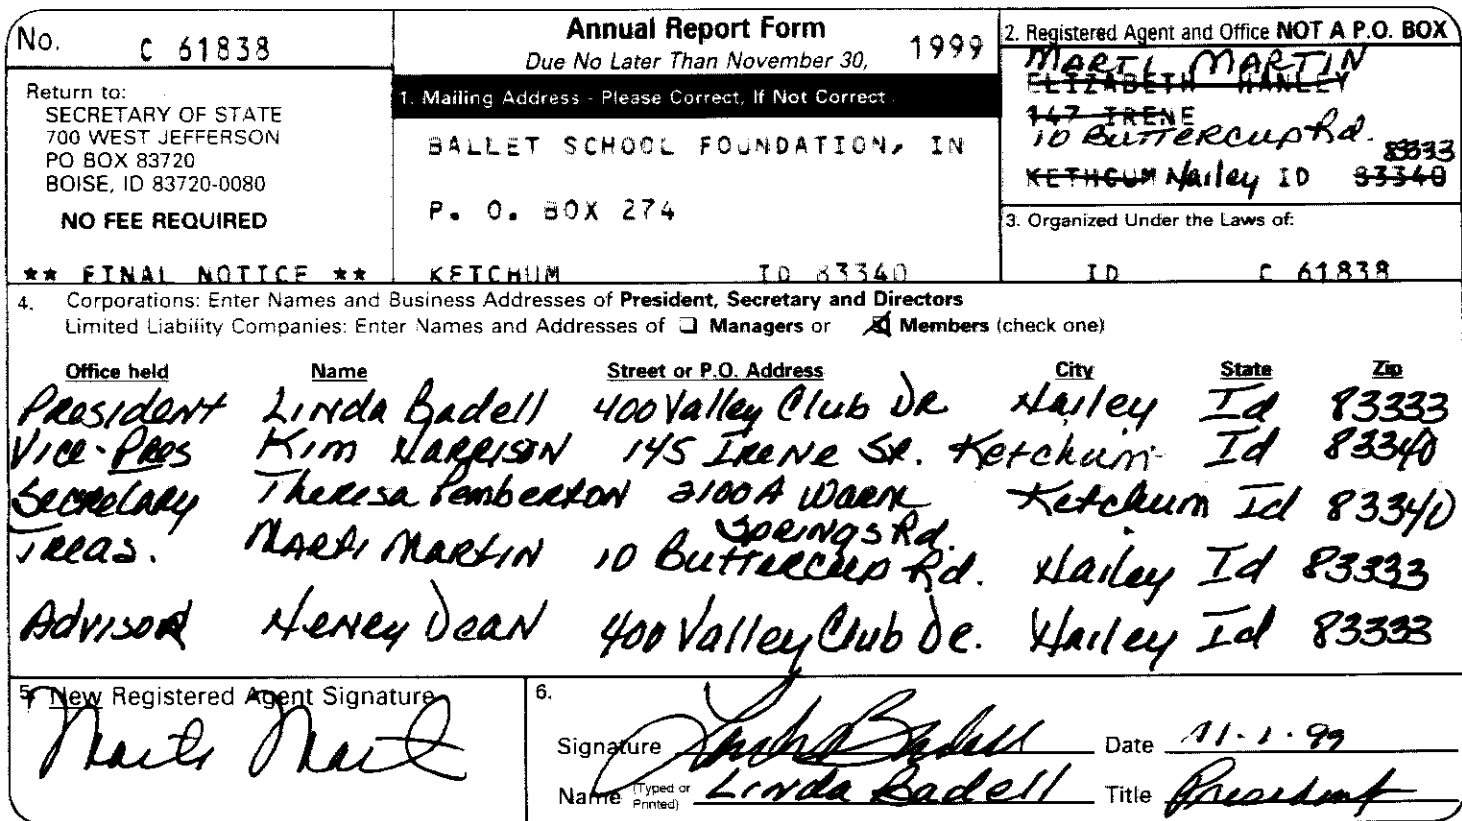 No. C 61838
Annual Report Form
Due No Later Than November 30, 1999
Return to:
SECRETARY OF STATE
700 WEST JEFFERSON
PO BOX 83720
BOISE, ID 83720-0080
NO FEE REQUIRED
** FINAL NOTICE **
1. Mailing Address - Please Correct, If Not Correct
BALLET SCHOOL FOUNDATION, IN
P. O. BOX 274
KETCHUM ID 83340
2. Registered Agent and Office NOT A P.O. BOX
MARTI MARTIN
ELIZABETH HANLEY
147 IRENE
10 Buttercup Rd.
83333
KETHCUM Hailey ID 83340
3. Organized Under the Laws of:
ID C 61838
4. Corporations: Enter Names and Business Addresses of President, Secretary and Directors
Limited Liability Companies: Enter Names and Addresses of Managers or Members (check one)
Office held Name Street or P.O. Address City State Zip
President Linda Badell 400 Valley Club Dr Hailey Id 83333
Vice-Pres Kim Harrison 145 Irene St. Ketchum Id 83340
Secretary Theresa Pemberton 2100A Warm Ketchum Id 83340
Springs Rd.
Treas. Marti Martin 10 Buttercup Rd. Hailey Id 83333
Advisor Henry Dean 400 Valley Club Dr. Hailey Id 83333
5. New Registered Agent Signature
Marti Mart
6.
Signature Linda Badell Date 11-1-99
Name (Typed or Printed) Linda Badell Title President